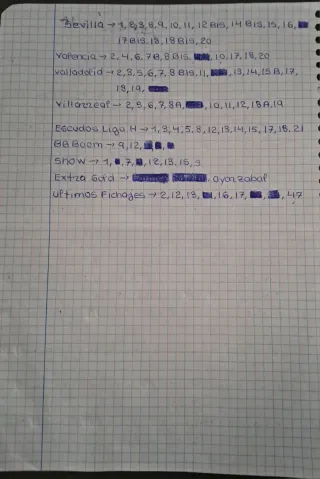 Sevilla → 1, 2, 3, 8, 9, 10, 11, 12 Bis, 14 Bis, 15, 16,
17 Bis, 18, 18 Bis, 20
Valencia → 2, 4, 6, 7B, 8 Bis, 10, 17, 18, 20
Valladolid → 2, 3, 5, 6, 7, 8 Bis, 11, 13, 14, 15 B, 17,
18, 19,
Villarreal → 2, 5, 6, 7, 8A, 10, 11, 12, 18A, 19
Escudos Liga H → 1, 3, 4, 5, 8, 12, 13, 14, 15, 17, 18, 21
BB Boom → 9, 12,
Show → 1, 7, 12, 13, 15, 9
Extra Gold → Oyarzabal
Ultimos Fichajes → 2, 12, 13, 16, 17, 47